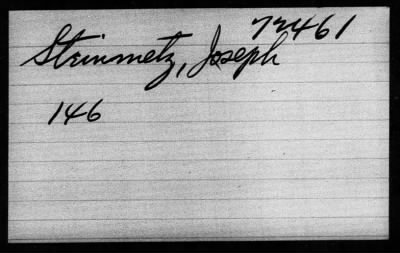 72461
Steinmetz, Joseph
146